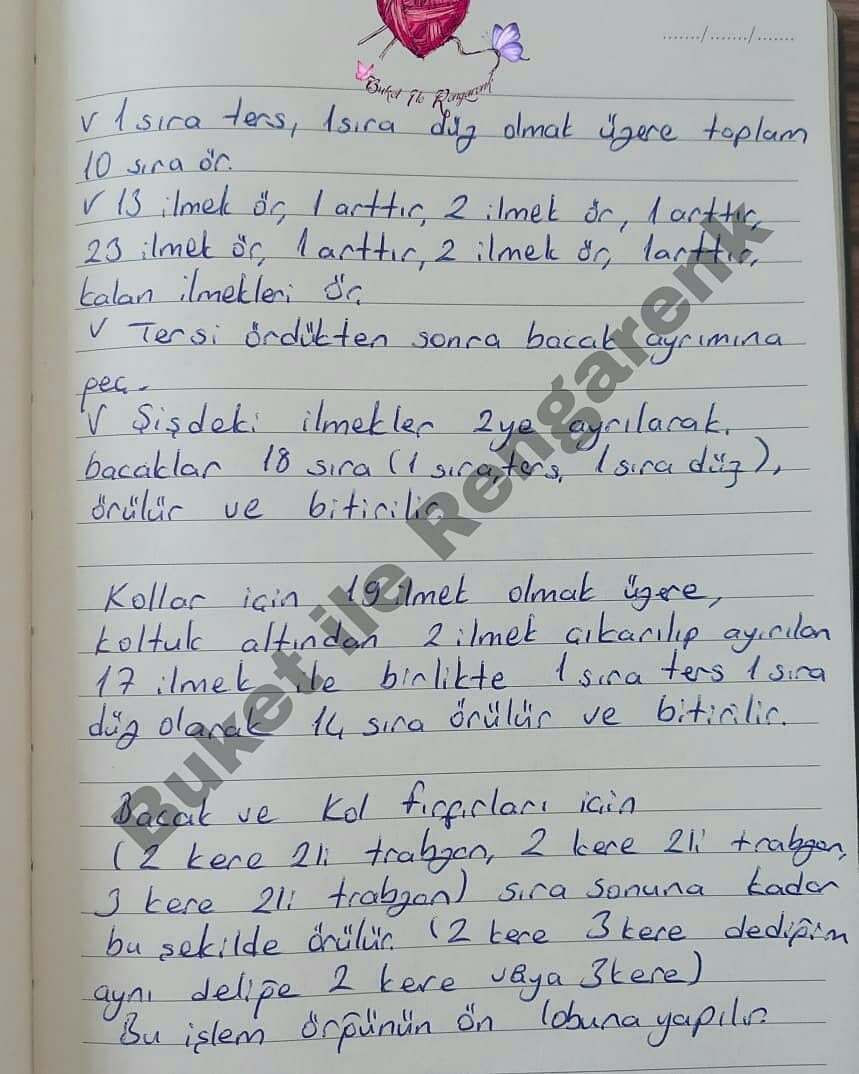 ...../...../.....
Buket İle Rengarenk
V 1 sıra ters, 1 sıra düz olmak üzere toplam
10 sıra ör.
V 13 ilmek ör, 1 arttır, 2 ilmek ör, 1 arttır,
23 ilmek ör, 1 arttır, 2 ilmek ör, 1arttır,
kalan ilmekleri ör.
V Tersi ördükten sonra bacak ayrımına
geç.
V Şişdeki ilmekler 2ye ayrılarak,
bacaklar 18 sıra (1 sıra ters, 1 sıra düz),
örülür ve bitirilir.
Kollar için 19 ilmek olmak üzere,
koltuk altından 2 ilmek çıkarılıp ayırılan
17 ilmek ile birlikte 1 sıra ters 1 sıra
düz olarak 14 sıra örülür ve bitirilir.
Bacak ve Kol fırfırları için
(2 kere 2li trabzan, 2 kere 2li trabzan,
3 kere 2li trabzan) sıra sonuna kadar
bu şekilde örülür. (2 kere 3 kere dediğim
aynı deliğe 2 kere veya 3kere)
Bu işlem örgünün ön lobuna yapılır.
Buket ile Rengarenk